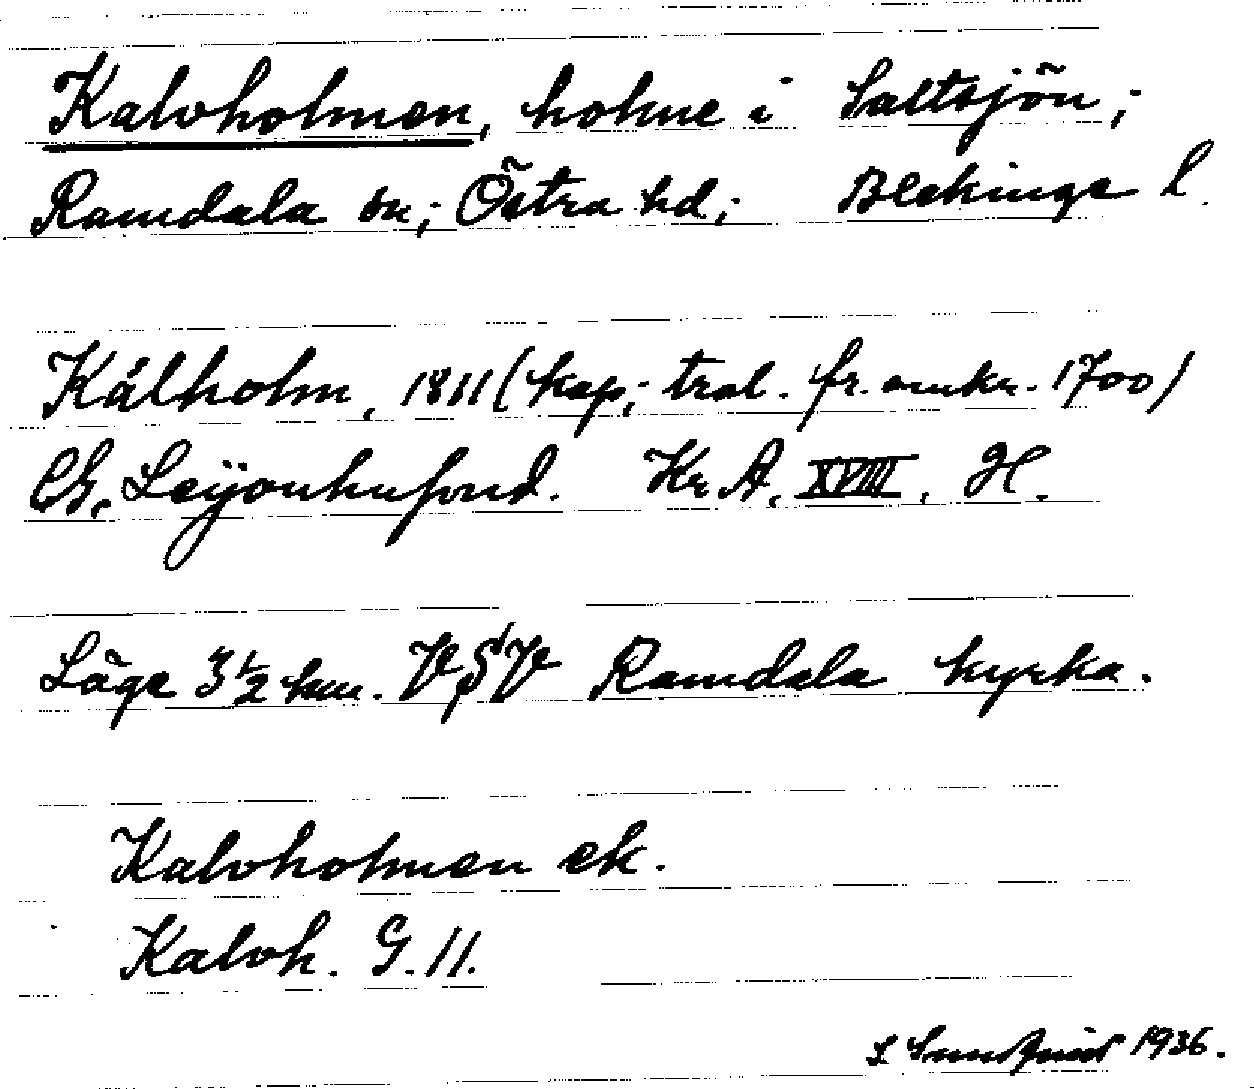 Kalvholmen, holme i Saltsjön;
Ramdala sn; Östra hd; Blekinge l.
Kálholm, 1811 (kop; trol. fr. omkr. 1700)
Ch. Leijonhufvud. Kr. A. XVIII. H.
Läge 3 1/2 km. VSV Ramdala kyrka.
Kalvholmen ek.
Kalvh. G. 11.
1936.